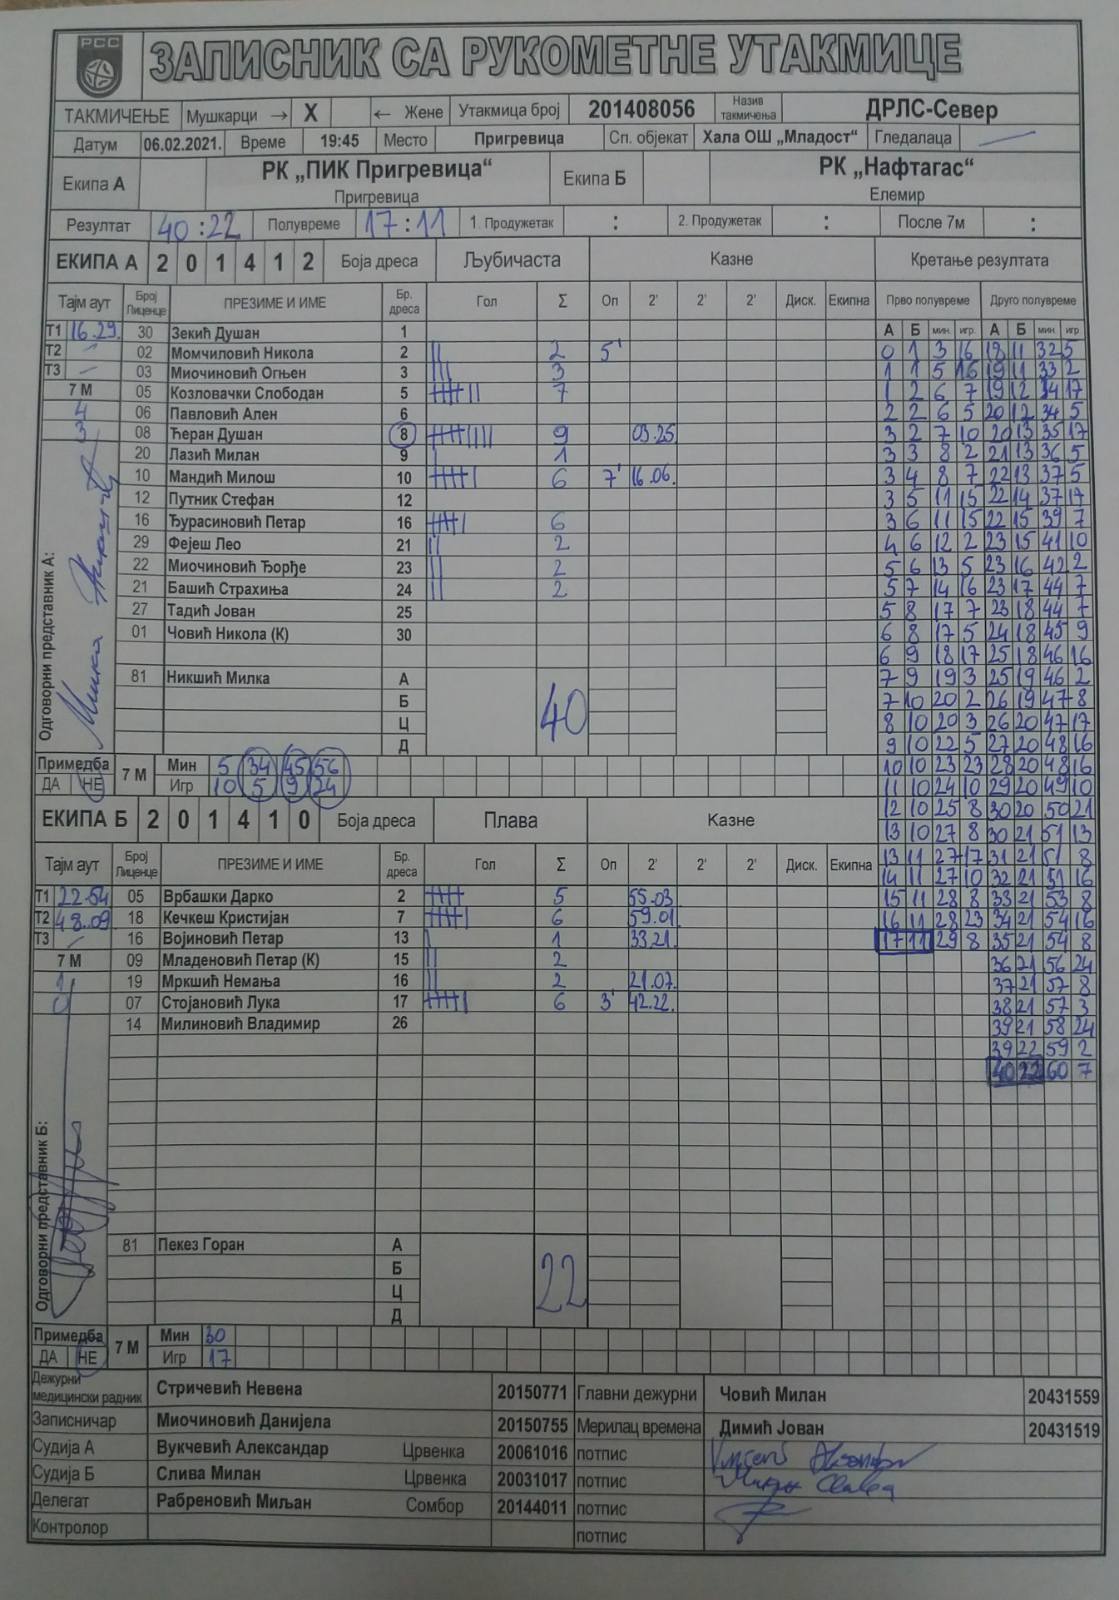 РСС
ЗАПИСНИК СА РУКОМЕТНЕ УТАКМИЦЕ
ТАКМИЧЕЊЕ Мушкарци → X ← Жене Утакмица број 201408056 Назив такмичења ДРЛС-Север
Датум 06.02.2021. Време 19:45 Место Пригревица Сп. објекат Хала ОШ „Младост“ Гледалаца
Екипа А РК „ПИК Пригревица“ Екипа Б РК „Нафтагас“
Пригревица Елемир
Резултат 40:22 Полувреме 17:11 1. Продужетак : 2. Продужетак : После 7м :
ЕКИПА А 2 0 1 4 1 2 Боја дреса Љубичаста Казне Кретање резултата
Тајм аут Број Лиценце ПРЕЗИМЕ И ИМЕ Бр. дреса Гол Σ Оп 2' 2' 2' Диск. Екипна Прво полувреме Друго полувреме
Т1 16.29. 30 Зекић Душан 1 А Б мин. игр. А Б мин. игр.
Т2 02 Момчиловић Никола 2 2 5' 0 1 3 16 18 11 32 5
Т3 03 Миочиновић Огњен 3 3 1 1 5 16 19 11 33 2
7 М 05 Козловачки Слободан 5 7 1 2 6 7 19 12 34 17
4 06 Павловић Ален 6 2 2 6 5 20 12 34 5
3 08 Ћеран Душан 8 9 03.25 3 2 7 10 20 13 35 17
20 Лазић Милан 9 1 3 3 8 2 21 13 36 5
10 Мандић Милош 10 6 7' 16.06. 3 4 8 7 22 13 37 5
12 Путник Стефан 12 3 5 11 15 22 14 37 17
16 Ђурасиновић Петар 16 6 3 6 11 15 22 15 39 7
29 Фејеш Лео 21 2 4 6 12 2 23 15 41 10
22 Миочиновић Ђорђе 23 2 5 6 13 5 23 16 42 2
21 Башић Страхиња 24 2 5 7 14 16 23 17 44 7
27 Тадић Јован 25 5 8 17 7 23 18 44 7
01 Човић Никола (К) 30 6 8 17 5 24 18 45 9
6 9 18 17 25 18 46 16
Одговорни представник А:
81 Никшић Милка А 40 7 9 19 3 25 19 46 2
Б 7 10 20 2 26 19 47 8
Ц 8 10 20 3 26 20 47 17
Д 9 10 22 5 27 20 48 16
Примедба 7 М Мин 5 34 45 56 10 10 23 23 28 20 48 16
ДА НЕ Игр 10 5 9 24 11 10 24 10 29 20 49 10
ЕКИПА Б 2 0 1 4 1 0 Боја дреса Плава Казне 12 10 25 8 30 20 50 21
13 10 27 8 30 21 51 13
Тајм аут Број Лиценце ПРЕЗИМЕ И ИМЕ Бр. дреса Гол Σ Оп 2' 2' 2' Диск. Екипна 13 11 27 17 31 21 51 8
14 11 27 10 32 21 51 16
Т1 22.54 05 Врбашки Дарко 2 5 55.03 15 11 28 8 33 21 53 8
Т2 48.09 18 Кечкеш Кристијан 7 6 59.01 16 11 28 23 34 21 54 16
Т3 16 Војиновић Петар 13 1 33.21. 17 11 29 8 35 21 54 8
7 М 09 Младеновић Петар (К) 15 2 36 21 56 24
1 19 Мркшић Немања 16 2 21.07. 37 21 57 8
0 07 Стојановић Лука 17 6 3' 42.22. 38 21 57 3
14 Милиновић Владимир 26 39 21 58 24
39 22 59 2
40 22 60 7
Одговорни представник Б:
81 Пекез Горан А 22
Б
Ц
Д
Примедба 7 М Мин 30
ДА НЕ Игр 17
Дежурни медицински радник Стричевић Невена 20150771 Главни дежурни Човић Милан 20431559
Записничар Миочиновић Данијела 20150755 Мерилац времена Димић Јован 20431519
Судија А Вукчевић Александар Црвенка 20061016 потпис
Судија Б Слива Милан Црвенка 20031017 потпис
Делегат Рабреновић Миљан Сомбор 20144011 потпис
Контролор потпис